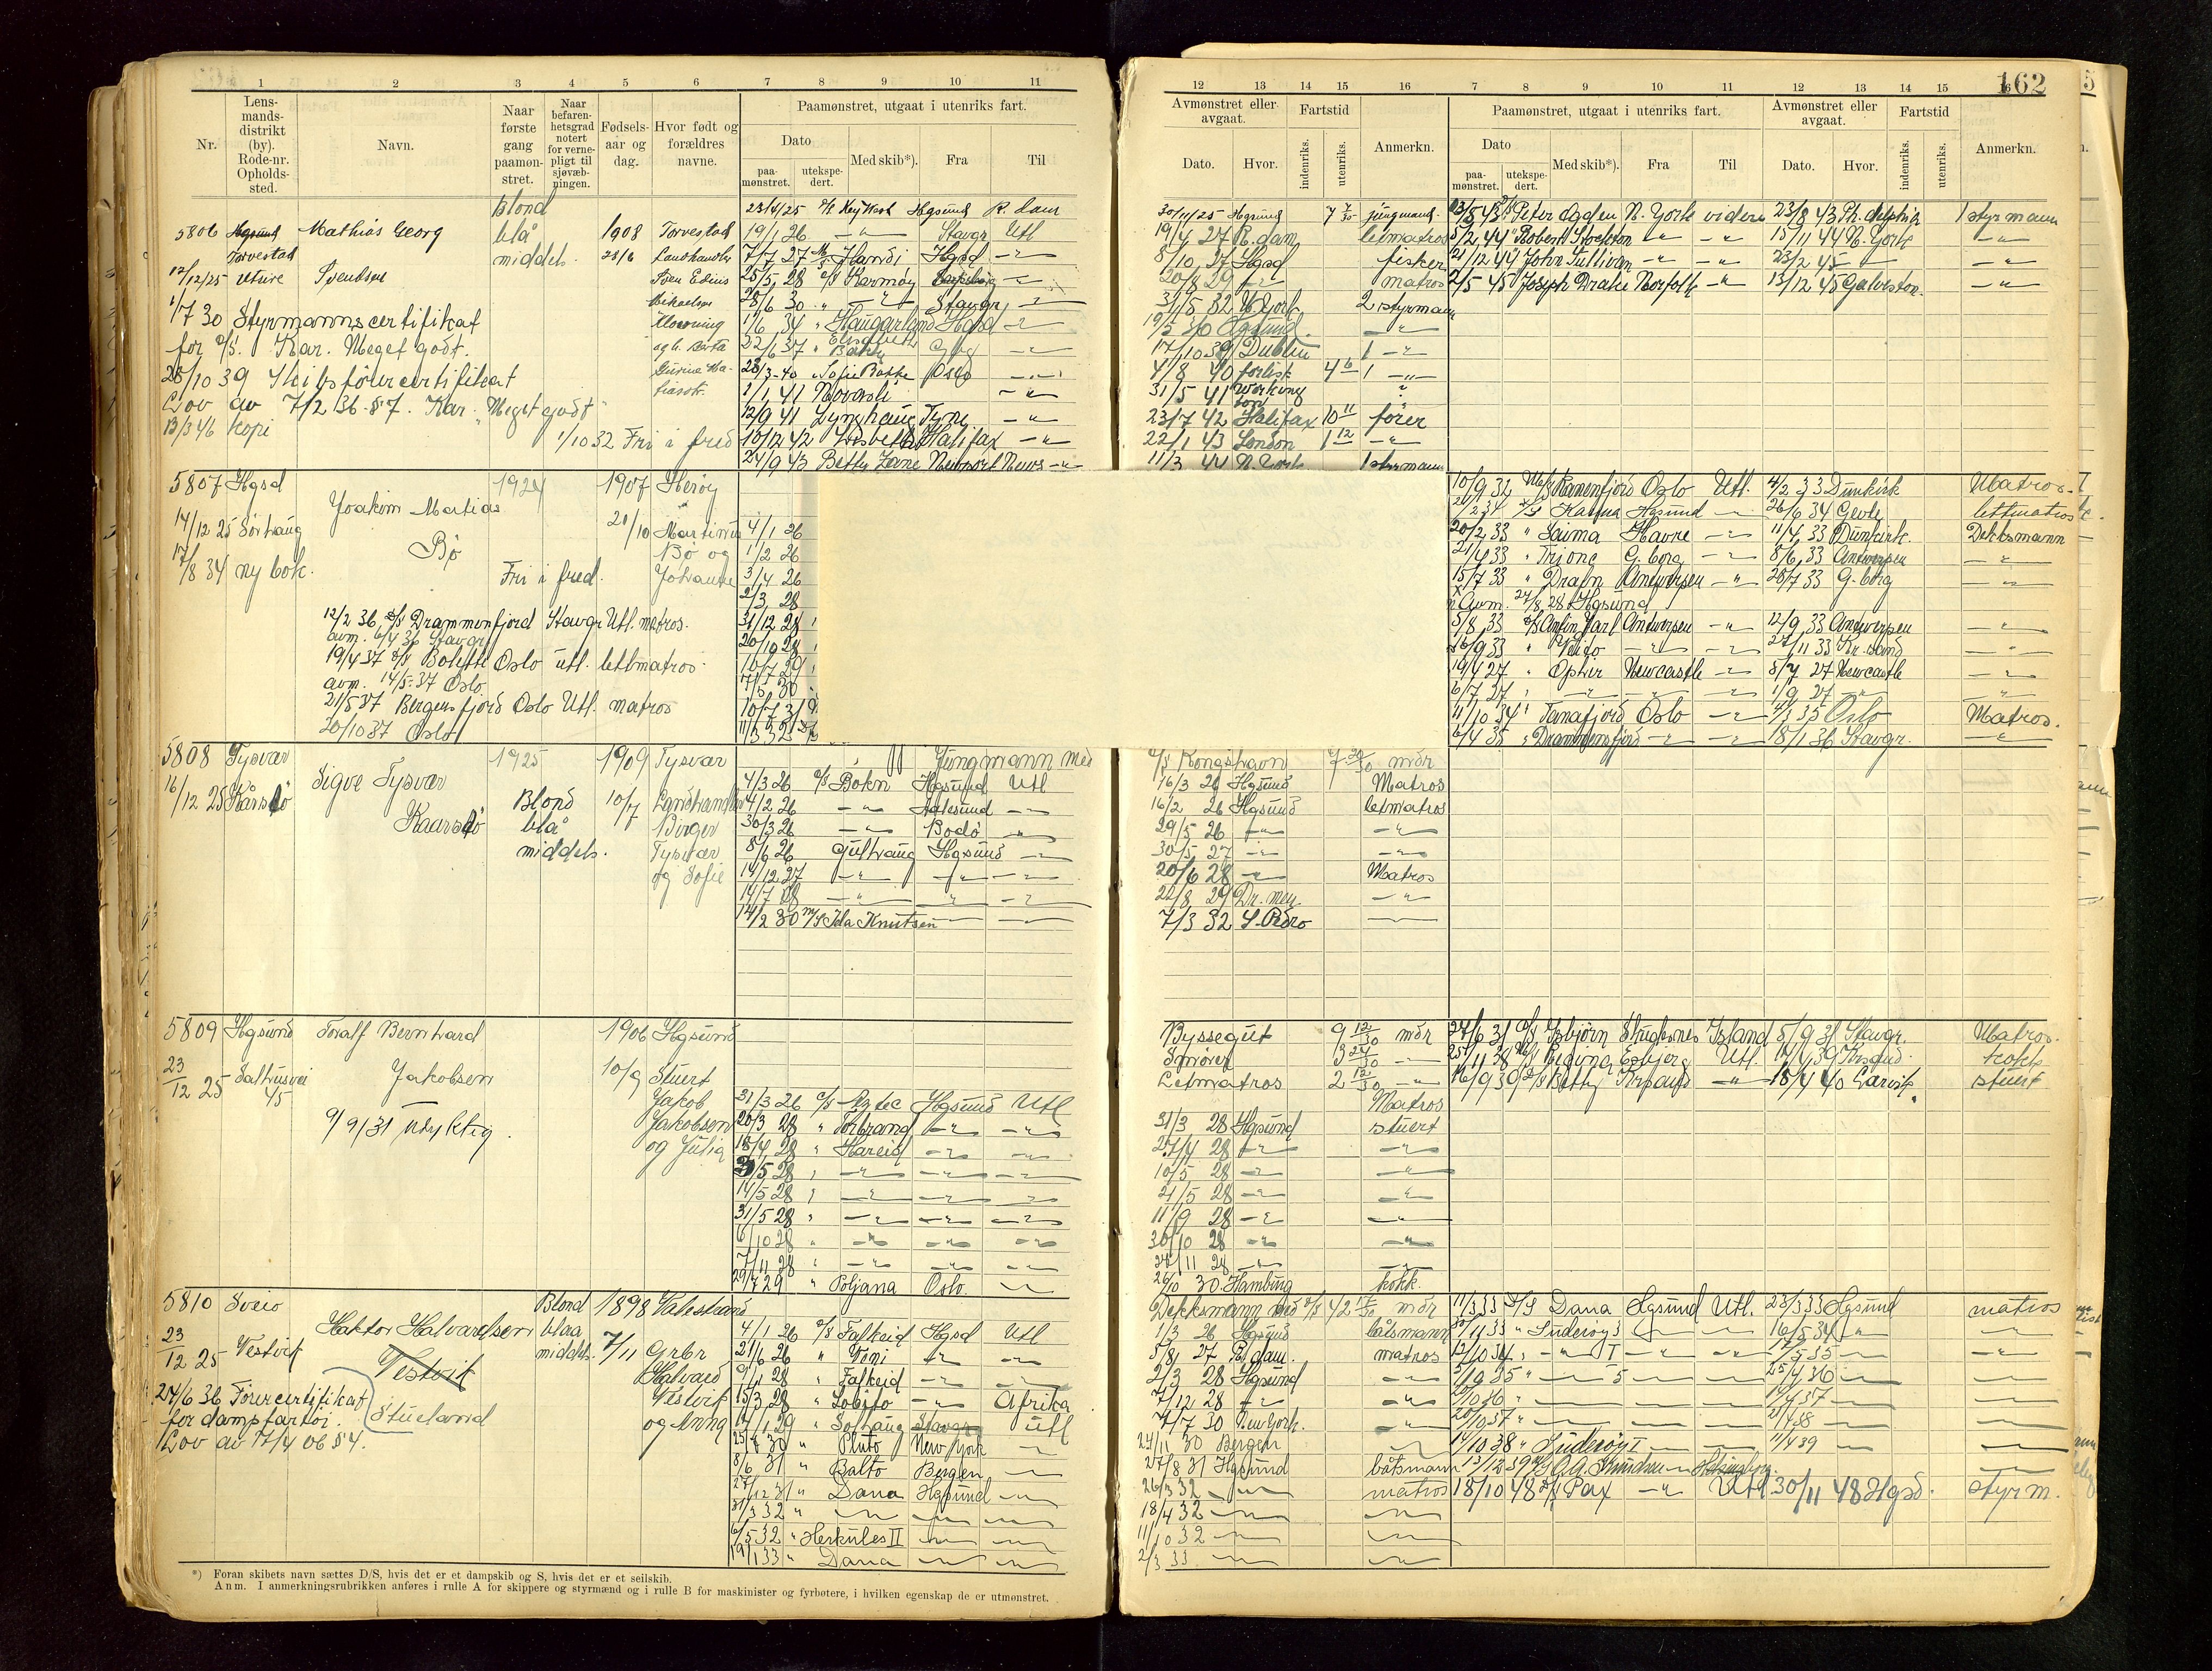 162
1 2 3 4 5 6 7 8 9 10 11
Nr.
Lens-
mands-
distrikt
(by).
Rode-nr.
Opholds-
sted.
Navn.
Naar
første
gang
paamøn-
stret.
Naar
befaren-
hetsgrad
notert
for verne-
pligt til
sjøvæb-
ningen.
Fødsels-
aar og
dag.
Hvor født og
forældres
navne.
Paamønstret, utgaat i utenriks fart.
Dato
paa-
mønstret.
utekspe-
dert.
Med skib*).
Fra
Til
5806 Hgsund Mathias Georg
Torvestad
12/12/25 Utvire Svendsen
Blond
blå
middels.
1908
28/6
Torvestad
Landhandler
Sven Edius
Mikaelsen
1/7 30 Styrmannscertifikat
for D/S. Kar. Meget godt.
28/10 39 Skibsförercertifikat
Lov av 7/2 36 §7. Kar. Meget godt
13/3 46 kopi
1/10 32 Fri i fred
23/4/25 Key West Hgsund R. dam
19/1 26 -"- Stavgr Utl
7/7 27 M/S Handi Hgsd -"-
25/5 28 D/S Karmøy
28/6 30 " -"- Stavgr -"-
1/6 34 " Haugarland Hgsd -"-
22/6 37 " Elisabeth Bakke Gbg -"-
28/3-40 " Sofie Bakke Oslo -"-
1/1 41 Novasli -"-
12/9 41 Lynghaug Tyne -"-
10/12 42 Lisbeth Halifax -"-
24/9 43 Betty Zane Newport News -"-
5807 Hgsd
14/12 25 Sørhaug
17/8 34 ny bok.
Joakim Matias
Bø
1924
Fri i fred.
1907
20/10
Herøy
Martinius
Bø og
Johanne
12/2 36 D/S Drammensfjord Stavgr Utl. matros.
avm. 6/4 36 Stavgr
19/4 37 D/S Bolette Oslo utl. lettmatros.
avm. 14/5-37 Oslo.
21/5 37 Bergensfjord Oslo Utl. matros
20/10 37 Oslo
4/1 26
1/2 26
3/4 26
2/3 28
31/12 28
20/10 28
5808 Tysvær
16/12 25 Kårstø
Sigve Tysvær
Kaarstø
1925
Blond
blå
middels.
1909
10/7
Tysvær
Landhandler
Birger
Tysvær
og Sofie
Jungmann med
4/3 26 D/S Bokn Hgsund Utl
4/2 26 -"- Aalesund -"-
30/3 26 -"- Bodø -"-
8/6 26 Gulhaug Hgsund -"-
14/12 27 -"- -"- -"-
14/7 28 -"- -"- -"-
14/2 30 M/S Ida Knutsen -"- -"-
5809 Hgsund
23/12 25 Salhusvei 45
Toralf Bernhard
Jakobsen
9/9/31 Udyktig.
1906
10/9
Hgsund
Stuert
Jakob
Jakobsen
og Julia
31/3 26 D/S Aztec Hgsund Utl
20/3 28 " Torbrand -"- -"-
18/4 28 " Hareid -"- -"-
5 28 " -"- -"- -"-
14/5 28 " -"- -"- -"-
31/5 28 " -"- -"- -"-
6/10 28 " -"- -"- -"-
7/11 28 " -"- -"- -"-
29/7 29 " Poljana Oslo -"-
5810 Sveio
23/12 25 Vestvik
Haktor Halvardsen
Vestvik
Stueland
24/6 36 Förercertifikat
for dampfartøi.
Lov av 17/4 06 §4.
Blond
blaa
middels.
1898
7/11
Valestrand
Grbr
Halvard
Vestvik
og Anna
4/1 26 D/S Falkeid Hgsd Utl
21/6 26 " Voni -"- -"-
9/1 28 " Falkeid -"- -"-
15/3 28 " Lobito -"- Afrika
17/1 29 " Solhaug Stavgr Utl
25/8 30 " Pluto New York -"-
8/6 31 " Balto Bergen -"-
27/12 31 " Dana Hgsund -"-
31/3 32 " -"- -"- -"-
6/5 32 " Herkules II -"- -"-
19/1 33 " Dana -"- -"-
*) Foran skibets navn sættes D/S, hvis det er et dampskib og S, hvis det er et seilskib.
Anm. I anmerkningsrubrikken anføres i rulle A for skippere og styrmænd og i rulle B for maskinister og fyrbøtere, i hvilken egenskap de er utmønstret.
12 13 14 15 16 7 8 9 10 11 12 13 14 15 16
Avmønstret eller
avgaat.
Fartstid
Dato.
Hvor.
indenriks.
utenriks.
Anmerkn.
Paamønstret, utgaat i utenriks fart.
Dato
paa-
mønstret.
utekspe-
dert.
Med skib*).
Fra
Til
Avmønstret eller
avgaat.
Dato.
Hvor.
Fartstid
indenriks.
utenriks.
Anmerkn.
30/11/25 Hgsund jungmand.
19/4 27 R. dam letmatros
8/10 27 Hgsd fisker
20/8 29 -"- matros
31/5 32 N. York 2 styrmann
19/5 36 Hgsund -"-
17/10 39 Dublin 1 -"-
4/8 40 forlist 1 -"-
31/5 41 Workington "
23/7 42 Halifax 10 fører
22/1 43 London 1 -"-
11/3 44 N. York 1 styrmann
13/5 43 Peter Ogden N. York videre 23/8 43 Ph. delphia 1 styrmann
5/2 44 " Robert Stockton -"- -"- 15/11 44 N. York -"-
21/12 44 John Sullivan -"- -"- 23/2 45 -"- -"-
2/5 45 Joseph Drake Norfolk -"- 13/12 45 Galveston. -"-
10/9 32 M/S Ranenfjord Oslo Utl. 4/2 33 Dunkirk Matros.
2 34 Karma Hgsund -"- 26/6 34 Gevle lettmatros
20/2 33 " Saima Havre -"- 11/4 33 Dunkirk Dekksmann
21/4 33 " Trione G. borg -"- 8/6 33 Antwerpen -"-
15/7 33 " Drafn Antwerpen -"- 28/7 33 G-borg -"-
Avm. 24/8 28 Hgsund
5/8 33 D/S Anfinn Jarl Antwerpen -"- 12/9 33 Antwerpen -"-
9 33 " Veito -"- -"- 27/11 33 Kr. sand -"-
19/4 27 " Ophir Newcastle -"- 5/7 27 Newcastle -"-
6/7 27 " -"- -"- -"- 1/9 27 -"- -"-
11/10 34 " Tanafjord Oslo -"- 4/3 35 Oslo Matros.
6/4 35 " Drammensfjord -"- -"- 18/1 36 Stavgr. -"-
D/S Kongshavn mdr
16/3 26 Hgsund Matros
16/2 26 Hgsund letmatros
29/5 26 -"- -"-
30/5 27 -"- -"-
20/6 28 -"- Matros
22/8 29 Dr. men -"-
7/3 32 S. Pedro -"-
Byssegut 9 12/30 mdr
Smører 3 24/30 -"-
Letmatros 2 12/30 -"-
Matros
31/3 28 Hgsund stuert
27/4 28 -"- -"-
10/5 28 -"- -"-
21/5 28 -"- -"-
11/9 28 -"- -"-
30/10 28 -"- -"-
11 28 -"-
26/10 30 Hamburg kokk.
27/6 31 D/S Isbjørn Skudesnes Island 5/9 31 Stavgr. Matros.
25/11 38 Regina Esbjerg Utl. 14/4 39 Krsund. kokk
16/9 39 D/S Betty Krsand -"- 18/4 40 Larvik. stuert
Dekksmann med D/S 42 mdr
1/3 26 Hgsund båtsmann
5/8 27 R. dam. matros
2/3 28 Hgsund -"-
7/12 28 -"- -"-
7/7 30 New York. -"-
24/11 30 Bergen -"-
27/8 31 Hgsund båtsmann
26/3 32 -"- matros
18/4 32 -"- -"-
11/10 32 -"- -"-
2/3 33. -"- -"-
11/3 33 D/S Dana Hgsund Utl. 23/3 33 Hgsund matros
30/11 33 " Suderøy 3 -"- -"- 16/5 34 -"- -"-
12/10 34 " -"- I -"- -"- 5 35 -"- -"-
5/10 35 " -"- 5 -"- -"- 25/4 36 -"- -"-
10 36 " -"- -"- -"- 4 37 -"- -"-
20/10 37 " -"- -"- -"- 21/4 38 -"- -"-
14/10 38 " Suderøy I -"- -"- 11/4 39 -"- -"-
13/12 39 M/S O. A. Knudsen -"- -"-
18/10 48 Pax -"- Utl 30/11 48 Hgsd. styrm.